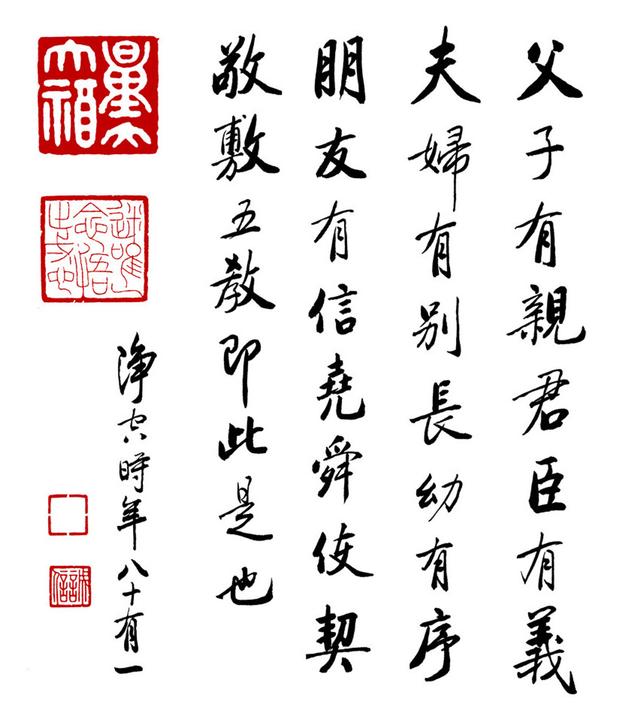 父子有親君臣有義
夫婦有别長幼有序
朋友有信堯舜使契
敬敷五教即此是也
淨空時年八十有一